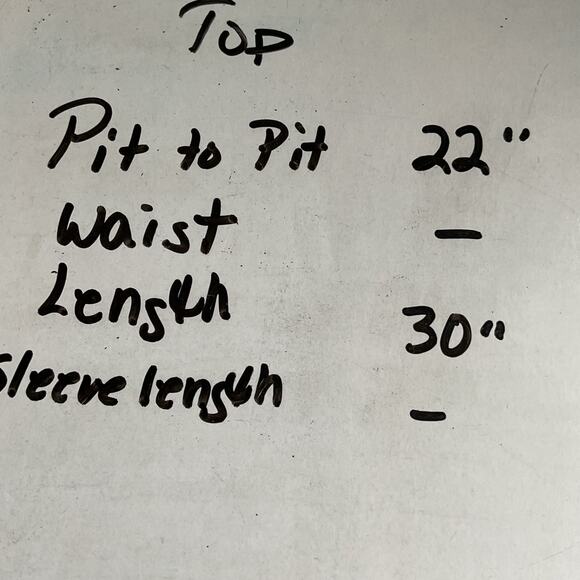 Top
Pit to Pit 22"
Waist -
Length 30"
Sleeve length -